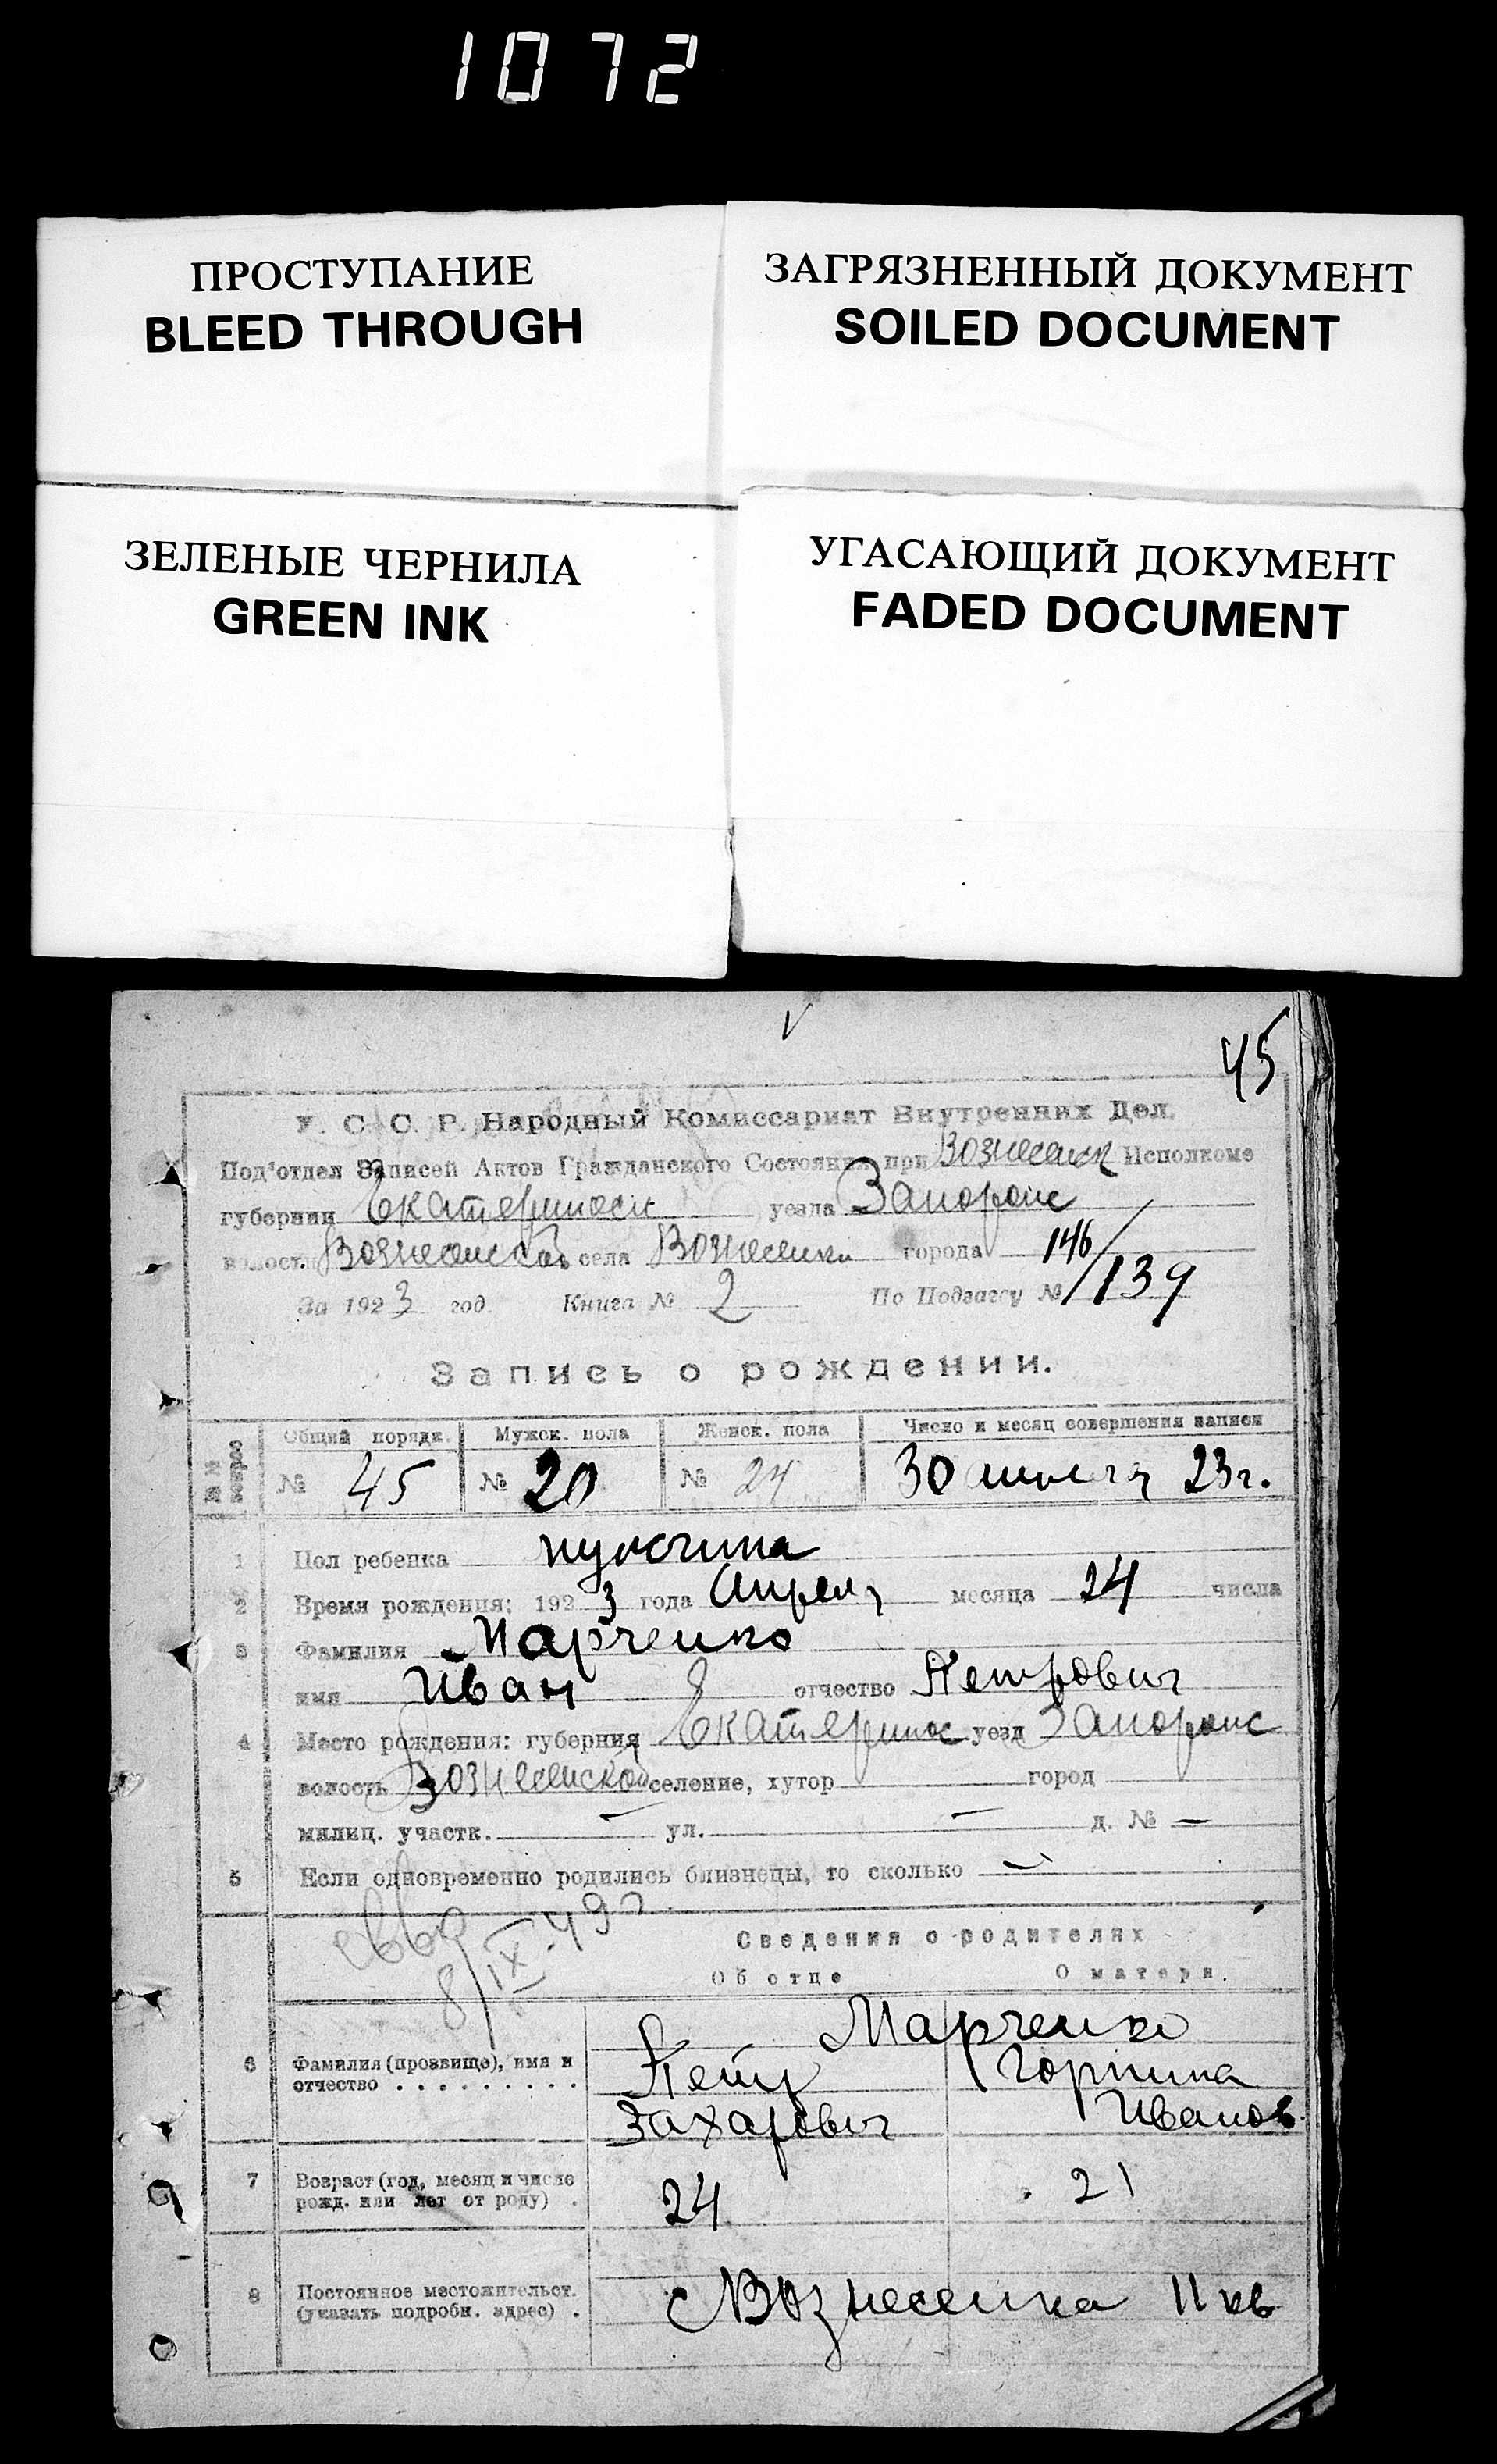 1072
ПРОСТУПАНИЕ
BLEED THROUGH
ЗАГРЯЗНЕННЫЙ ДОКУМЕНТ
SOILED DOCUMENT
ЗЕЛЕНЫЕ ЧЕРНИЛА
GREEN INK
УГАСАЮЩИЙ ДОКУМЕНТ
FADED DOCUMENT
45
У. С. С. Р. Народный Комиссариат Внутренних Дел.
Под'отдел Записей Актов Гражданского Состояния при Вознесенск Исполкоме
губернии Екатеринос уезда Запорож
волости Вознесенской села Вознесенки города 146/
За 1923 год. Книга № 2 По Подзагсу № 139
Запись о рождении.
Общий порядк. Мужск. пола Женск. пола Число и месяц совершения записи
№ 45 № 20 № 24 30 23г.
1 Пол ребенка мужчина
2 Время рождения: 1923 года Апреля месяца 24 числа
3 Фамилия Марченко
имя Иван отчество Петрович
4 Место рождения: губерния Екатеринос уезд Запорож
волость Вознесенской селение, хутор город
милиц. участк. — ул. — д. № —
5 Если одновременно родились близнецы, то сколько —
8/IX-49г.
Сведения о родителях
Об отце О матери.
Марченко
6 Фамилия (прозвище), имя и Петр Горпина
отчество . . . . . . . . . Захарович Иванов.
7 Возраст (год, месяц и число
рожд. или лет от роду) . 24 21
8 Постоянное местожительст.
(указать подробн. адрес) . с Вознесенка 11 кв